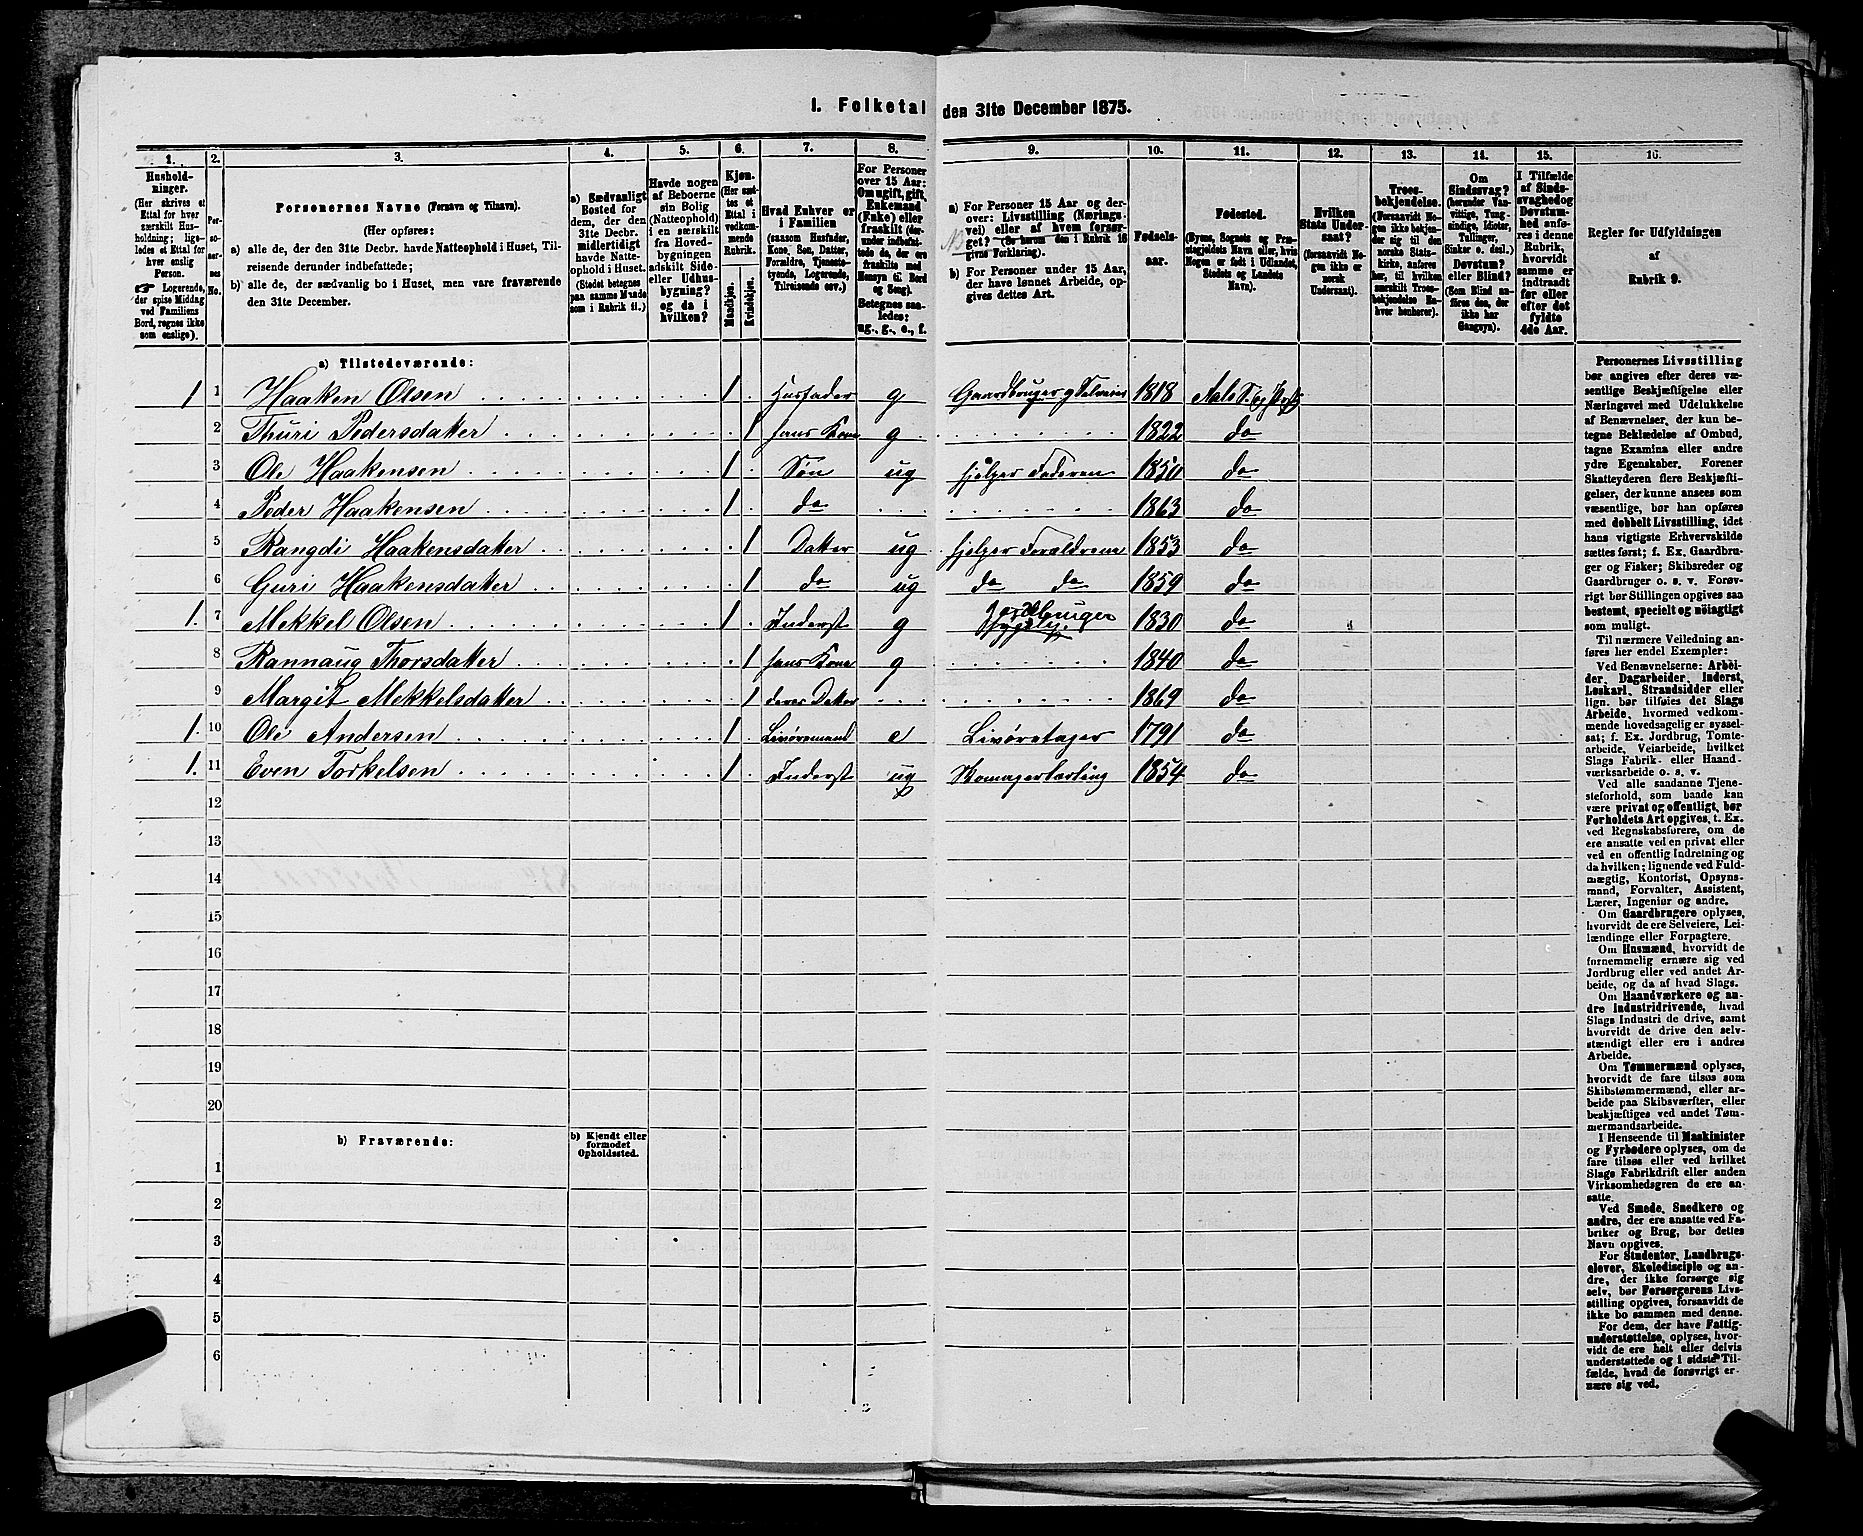 I. Folketal den 31te December 1875.
1. 2. 3. 4. 5. 6. 7. 8. 9. 10. 11. 12. 13. 14. 15. 16.
Hushold-
ninger.
(Her skrives et
Ettal for hver
særskilt Hus-
holdning; lige-
ledes et Ettal for
hver enslig
Person.
☞ Logerende,
der spise Middag
ved Familiens
Bord, regnes ikke
som enslige).
Per-
so-
ner-
nes
No.
Personernes Navne (Fornavn og Tilnavn).
(Her opføres:
a) alle de, der den 31te Decbr. havde Natteophold i Huset, Til-
reisende derunder indbefattede;
b) alle de, der sædvanlig bo i Huset, men vare fraværende
den 31te December.
a) Sædvanligt
Bosted for
dem, der den
31te Decbr.
midlertidigt
havde Natte-
ophold i Huset.
(Stedet betegnes
paa samme Maade
som i Rubrik 11.)
Havde nogen
af Beboerne
sin Bolig
(Natteophold)
i en særskilt
fra Hoved-
bygningen
adskilt Side-
eller Udhus-
bygning?
og da i
hvilken?
Kjøn.
(Her sæt-
tes et
Ettal i
vedkom-
mende
Rubrik.
Mandkjøn.
Kvindekjøn.
Hvad Enhver er
i Familien
(saasom Husfader,
Kone, Søn, Datter,
Forældre, Tjeneste-
tyende, Logerende,
Tilreisende osv.)
For Personer
over 15 Aar:
Om ugift, gift,
Enkemand
(Enke) eller
fraskilt (der-
under indbefat-
tede de, der ere
fraskilte med
Hensyn til Bord
og Seng).
Betegnes saa-
ledes:
ug., g., e., f.
a) For Personer 15 Aar og der-
over: Livsstilling (Nærings-
vei) eller af hvem forsør-
get? (Se herom den i Rubrik 16
givne Forklaring).
b) For Personer under 15 Aar,
der have lønnet Arbeide, op-
gives dettes Art.
Fødsels-
aar.
Fødested.
(Byens, Sognets og Præ-
stegjeldets Navn eller, hvis
Nogen er født i Udlandet,
Stedets og Landets
Navn).
Hvilken
Stats Under-
saat?
(forsaavidt No-
gen ikke er
norsk
Undersaat).
Troes-
bekjendelse.
(Forsaavidt No-
gen ikke bekjen-
der sig til den
norske Stats-
kirke, anføres
her, til hvilken
særskilt Troes-
bekjendelse En-
hver henhører).
Om
Sindssvag?
(herunder Van-
vittige, Tung-
sindige, Idioter,
Tullinger,
Sinker o. desl.)
Døvstum?
eller Blind?
(Som Blind an-
føres den, der
ikke har
Gangsyn).
I Tilfælde
af Sinds-
svaghed og
Døvstum-
hed anfø-
res i denne
Rubrik,
hvorvidt
samme er
indtraadt
før eller
efter det
fyldte
4de Aar.
Regler for Udfyldningen
af
Rubrik 9.
a) Tilstedeværende:
1 1 Haaken Olsen 1 Husfader g Gaardbruger og Selveier 1818
2 Thuri Pedersdatter 1 hans Kone g 1822 do
3 Ole Haakensen 1 Søn ug hjelper Faderen 1850 do
4 Peder Haakensen 1 do 1863 do
5 Rangdi Haakensdatter 1 Datter ug hjelper Forældrene 1853 do
6 Guri Haakensdatter 1 do ug do do 1859 do
1. 7 Mekkel Olsen 1 Inderst g Jordbruger 1830 do
8 Rannaug Thorsdatter 1 hans Kone g 1840 do
9 Margit Mekkelsdatter 1 deres Datter 1869 do
1. 10 Ole Andersen 1 Livøremand e Livøretager 1791 do
1. 11 Even Torkelsen 1 Inderst ug Skomagerlærling 1854 do
12
13
14
15
16
17
18
19
20
b) Fraværende:
b) Kjendt eller
formodet
Opholdssted.
1
2
3
4
5
6
Personernes Livsstilling
bør angives efter deres væ-
sentlige Beskjæftigelse eller
Næringsvei med Udelukkelse
af Benævnelser, der kun be-
tegne Beklædelse af Ombud,
tagne Examina eller andre
ydre Egenskaber. Forener
Skatteyderen flere Beskjæfti-
gelser, der kunne ansees som
væsentlige, bør han opføres
med dobbelt Livsstilling, idet
hans vigtigste Erhvervskilde
sættes først; f. Ex. Gaardbru-
ger og Fisker; Skibsreder og
Gaardbruger o. s. v. Forøv-
rigt bør Stillingen opgives saa
bestemt, specielt og nöiagtigt
som muligt.
Til nærmere Veiledning an-
føres her endel Exempler:
Ved Benævnelserne: Arbei-
der, Dagarbeider, Inderst,
Løskarl, Strandsidder eller
lign. bør tilføies det Slags
Arbeide, hvormed vedkom-
mende hovedsagelig er syssel-
sat; f. Ex. Jordbrug, Tomte-
arbeide, Veiarbeide, hvilket
Slags Fabrik- eller Haand-
værksarbeide o. s. v.
Ved alle saadanne Tjene-
steforhold, som baade kan
være privat og offentligt, bør
Forholdets Art opgives, t. Ex.
ved Regnskabsførere, om de
ere ansatte ved en privat eller
ved en offentlig Indretning og
da hvilken; lignende ved Fuld-
mægtig, Kontorist, Opsyns-
mand, Forvalter, Assistent,
Lærer, Ingeniør og andre.
Om Gaardbrugere oplyses,
hvorvidt de ere Selveiere, Lei-
lændinge eller Forpagtere.
Om Husmænd, hvorvidt de
fornemmelig ernære sig ved
Jordbrug eller ved andet Ar-
beide, og da af hvad Slags.
Om Haandværkere og an-
dre Industridrivende, hvad
Slags Industri de drive, samt
hvorvidt de drive den selv-
stændigt eller ere i andres
Arbeide.
Om Tømmermænd oplyses,
hvorvidt de fare tilsøs som
Skibstømmermænd, eller ar-
beide paa Skibsværfter, eller
beskjæftiges ved andet Tøm-
mermandsarbeide.
I Henseende til Maskinister
og Fyrbødere oplyses, om de
fare tilsøs eller ved hvilket
Slags Fabrikdrift eller anden
Virksomhedsgren de ere an-
satte.
Ved Smede, Snedkere og
andre, der ere ansatte ved Fa-
briker og Brug, bør dettes
Navn opgives.
For Studenter, Landbrugs-
elever, Skoledisciple og an-
dre, der ikke forsørge sig
selv, bør Forsørgerens Livs-
stilling opgives, forsaavidt de
ikke bo sammen med denne.
For dem, der have Fattig-
understøttelse, oplyses, hvor-
vidt de ere helt eller delvis
understøttede og i sidste Til-
fælde, hvad de forøvrigt er-
nære sig ved.